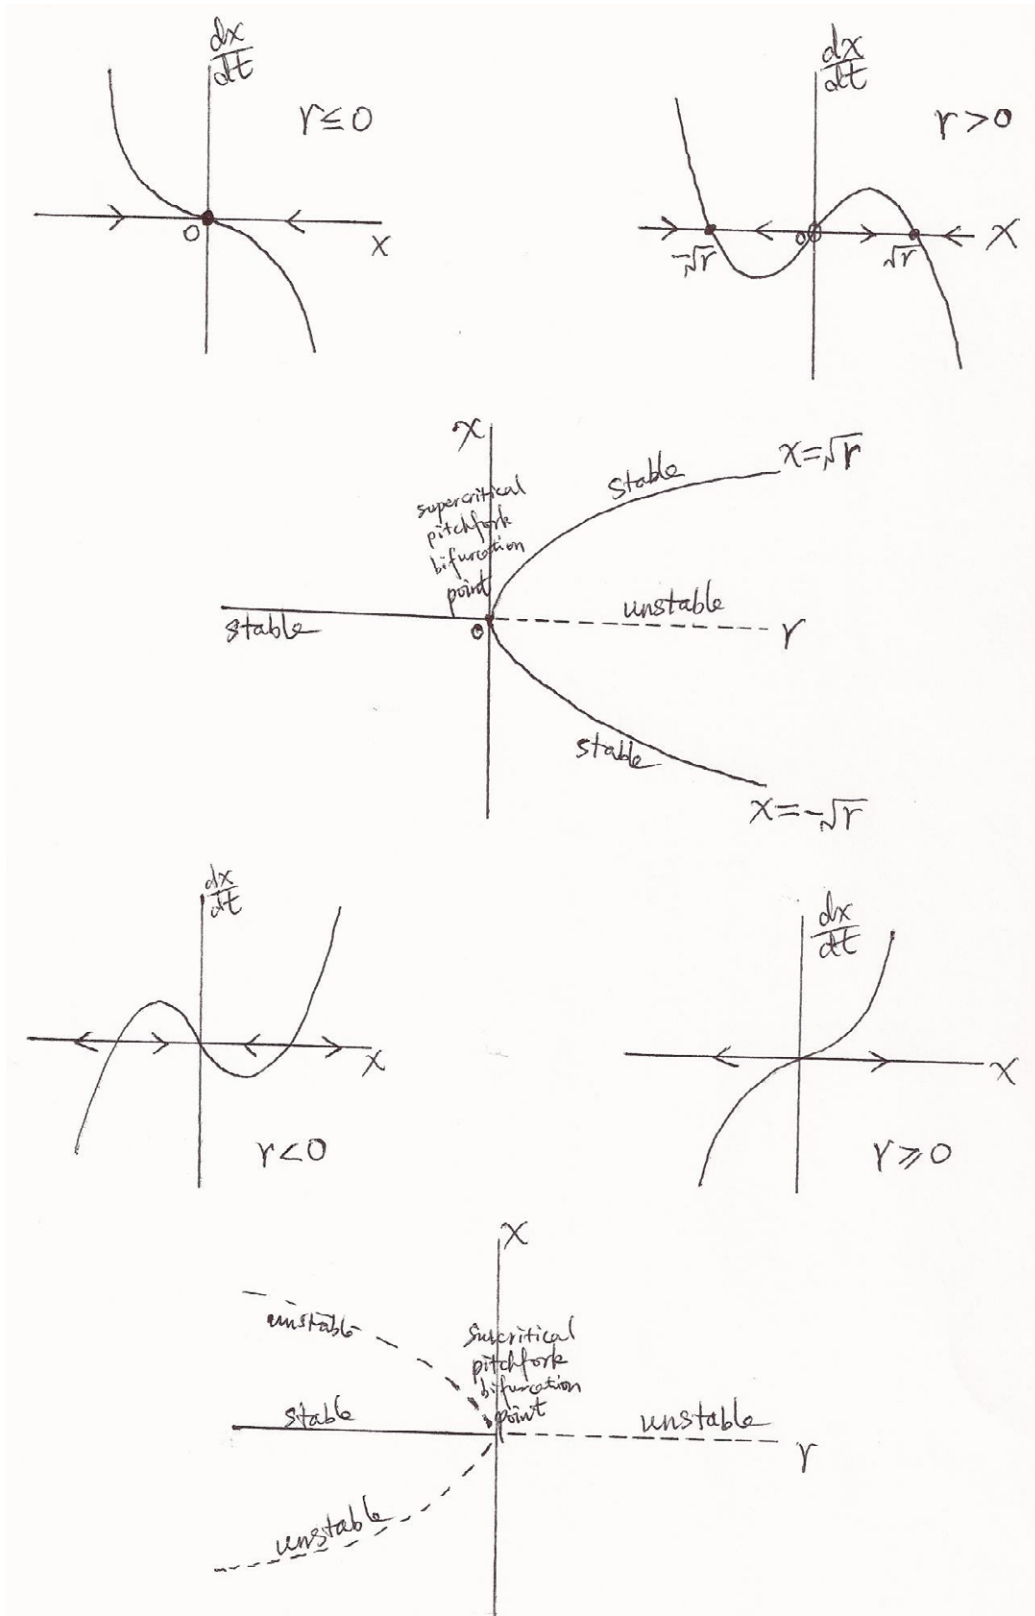 dx/dt
r≦0
0
x
dx/dt
r>0
-√r
0
√r
x
x
x=√r
stable
supercritical
pitchfork
bifurcation
point
unstable
stable
0
r
stable
x=-√r
dx/dt
x
r<0
dx/dt
x
r⩾0
x
unstable
Surcritical
pitchfork
bifurcation
point
stable
unstable
r
unstable